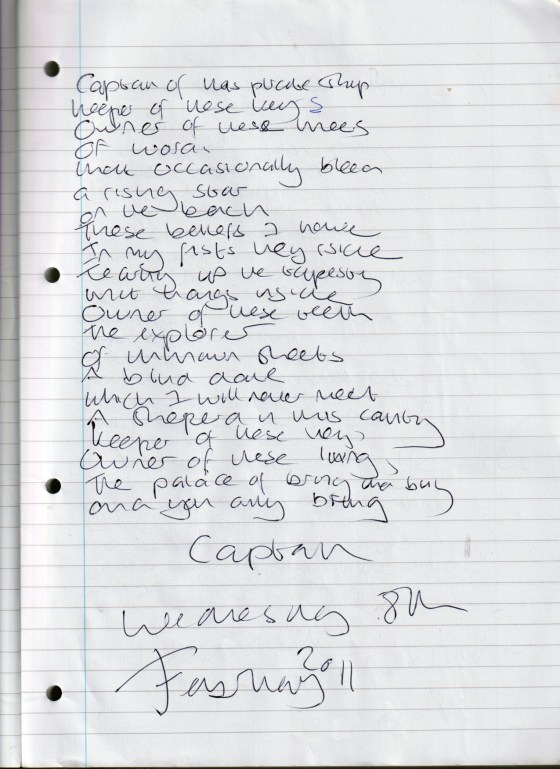 Captain of this pirate ship
Keeper of these keys
Owner of these knees
Of words
that occasionally bleed
a rising star
on the beach
These beliefs I have
In my fists they reside
Tearing up the tapestry
that hangs inside
Owner of these teeth
The explorer
of unknown streets
A blind date
which I will never meet
A shepherd in this country
Keeper of these keys
Owner of these
The palace of
and you only bring
Captain
Wednesday 8th
2011